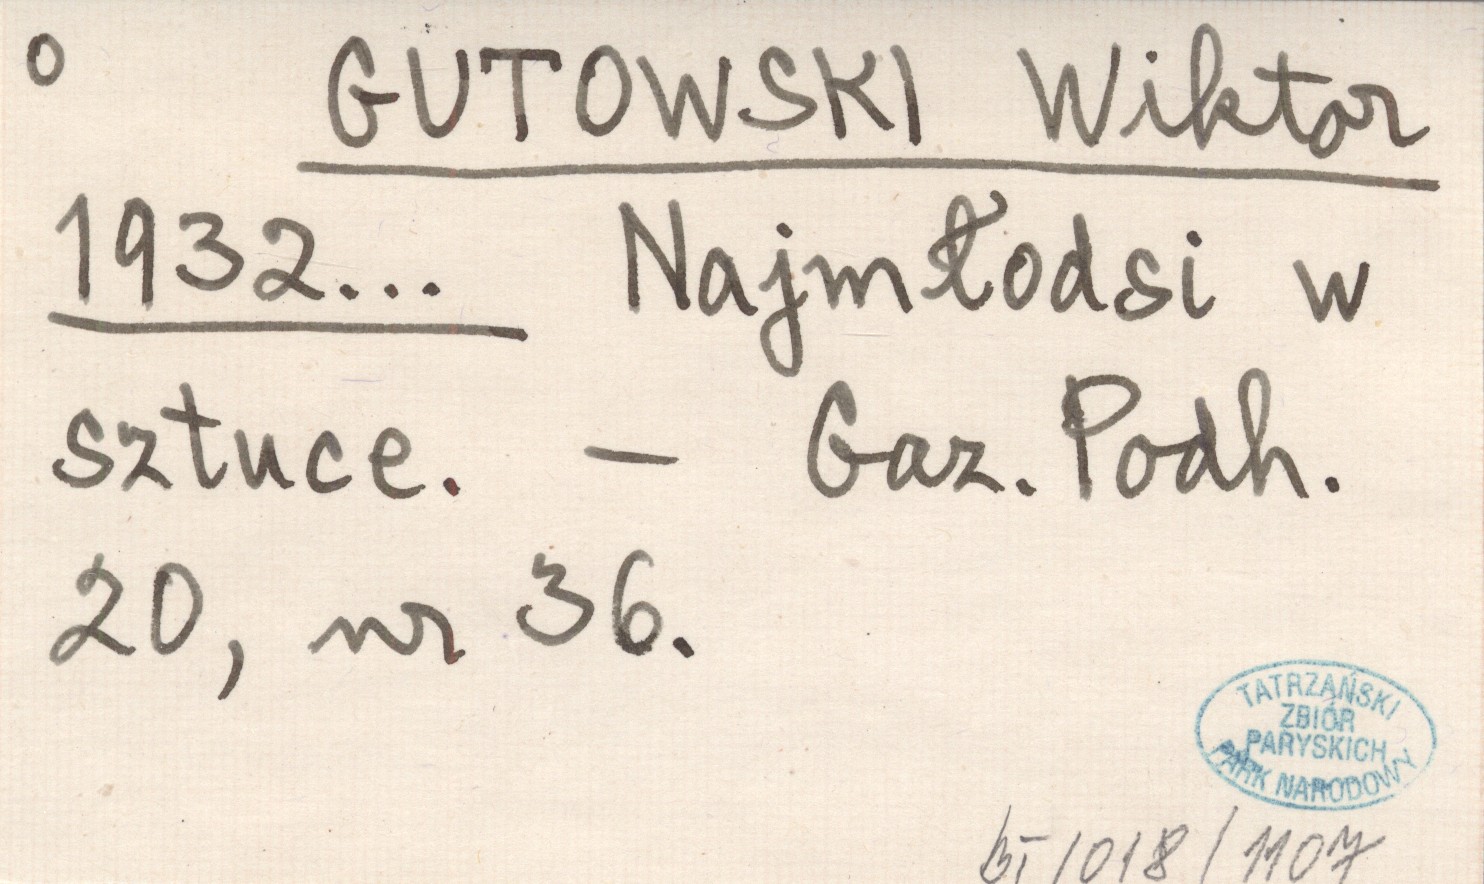 o GUTOWSKI Wiktor
1932... Najmłodsi w
sztuce. — Gaz. Podh.
20, nr 36.
TATRZAŃSKI
ZBIÓR
PARYSKICH
PARK NARODOWY
bI/018/1107